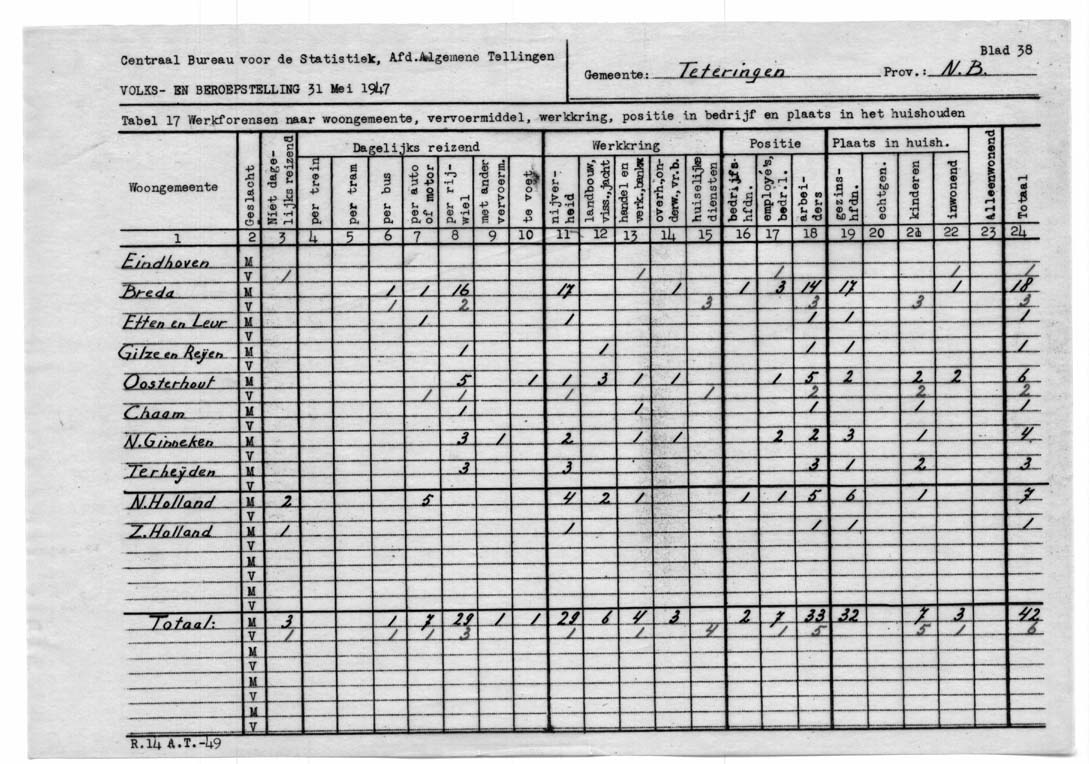 Centraal Bureau voor de Statistiek, Afd.Algemene Tellingen
VOLKS- EN BEROEPSTELLING 31 Mei 1947
Gemeente: Teteringen Prov.: N.B.
Blad 38
Tabel 17 Werkforensen naar woongemeente, vervoermiddel, werkkring, positie in bedrijf en plaats in het huishouden
Woongemeente Geslacht Niet dage-lijks reizend Dagelijks reizend Werkkring Positie Plaats in huish. Alleenwonend Totaal
per trein per tram per bus per auto of motor per rij-wiel met ander vervoerm. te voet nijver-heid landbouw, viss.,jacht handel en verk.,bankw overh.,on-derw.,vr.b. huiselijke diensten bedrijfs-hfdn. employe's, bedr.l. arbei-ders gezins-hfdn. echtgen. kinderen inwonend
1 2 3 4 5 6 7 8 9 10 11 12 13 14 15 16 17 18 19 20 21 22 23 24
Eindhoven M
V 1 1 1 1 1
Breda M 1 1 16 17 1 1 3 14 17 1 18
V 1 2 3 3 3 3
Etten en Leur M 1 1 1 1 1
V
Gilze en Reÿen M 1 1 1 1 1
V
Oosterhout M 5 1 1 3 1 1 1 5 2 2 2 6
V 1 1 1 1 2 2 2
Chaam M 1 1 1 1 1
V
N.Ginneken M 3 1 2 1 1 2 2 3 1 4
V
Terheÿden M 3 3 3 1 2 3
V
N.Holland M 2 5 4 2 1 1 1 5 6 1 7
V
Z.Holland M 1 1 1 1 1
V
M
V
M
V
M
V
Totaal: M 3 1 7 29 1 1 29 6 4 3 2 7 33 32 7 3 42
V 1 1 1 3 1 1 4 1 5 5 1 6
M
V
M
V
M
V
R.14 A.T.-49